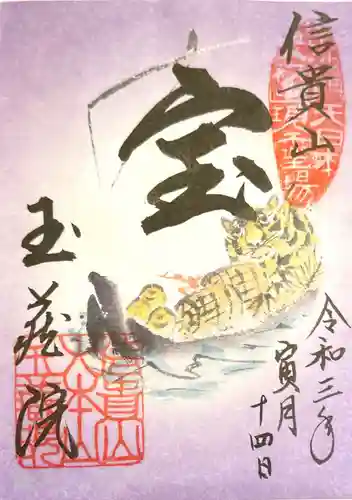 信貴山
宝
玉蔵院
令和三年
寅月
十四日